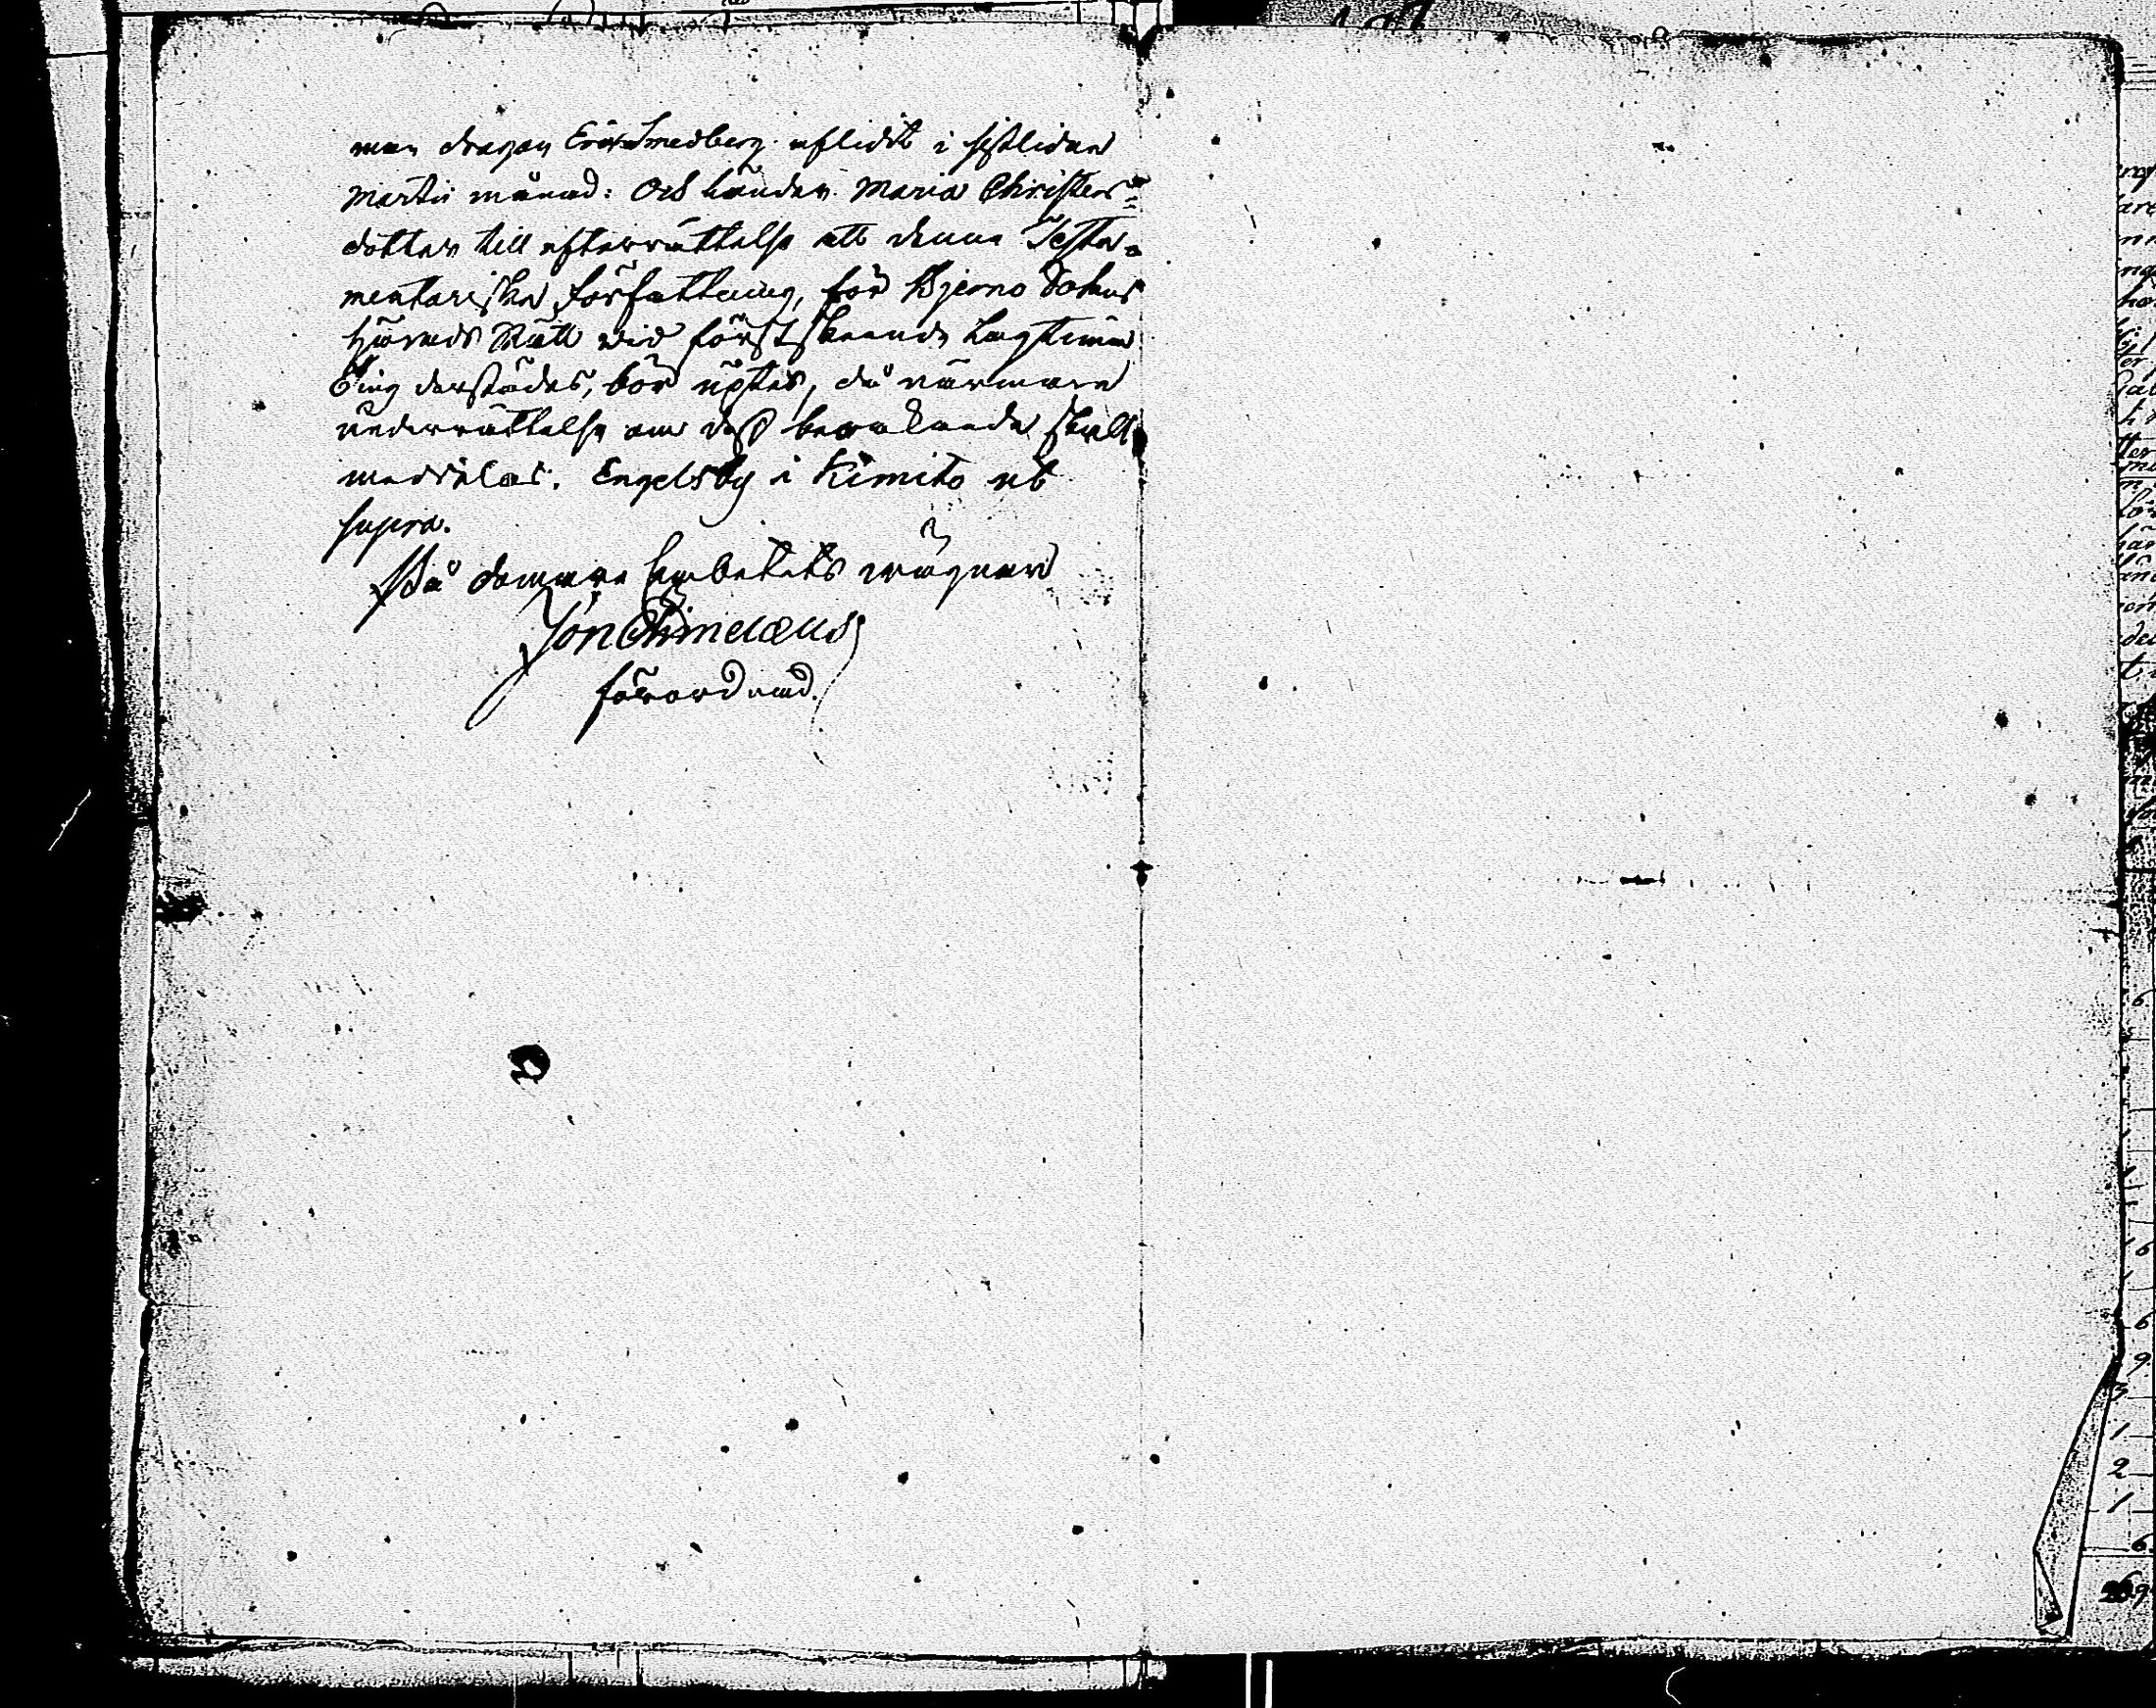 man dragon Eric Smedberg aflidit i sistlidne
Martii månad: Och länder Maria Christers=
dotter till efterrättelse att denna Testa=
mentariska författning, för Bjerno Sokns
härads Rätt vid först skeende Lagtima
Ting derstädes, bör upte, då närmare
underrättelse om dess bevakande skall
meddelas. Engelsby i Kimito ut
supra.
På domare Embetets wägnar
förordnad.